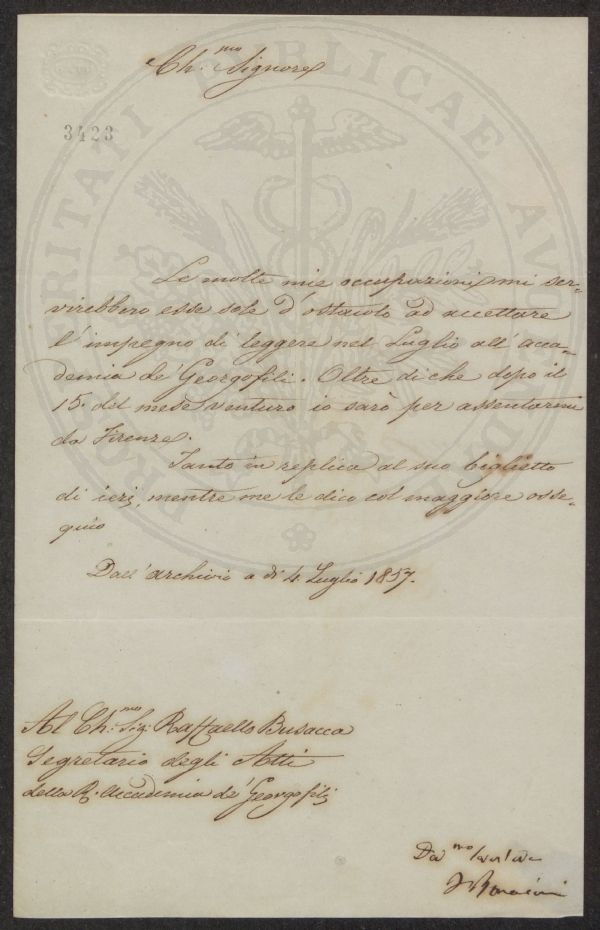 Ch.mo Signore
3423
PROSPERITATI PUBLICAE AUGENDAE
Le molte mie occupazioni mi ser-
virebbero esse sole d'ostacolo ad accettare
l'impegno di leggere nel Luglio all'acca-
demia de' Georgofili. Oltre di che dopo il
15. del mese venturo io sarò per assentarmi
da Firenze.
Tanto in replica al suo biglietto
di ieri, mentre me le dico col maggiore osse-
quio
Dall'archivio a dì 4. Luglio 1857.
Al Ch.mo Sig: Raffaello Busacca
Segretario degli Atti
della R. Accademia de' Georgofili